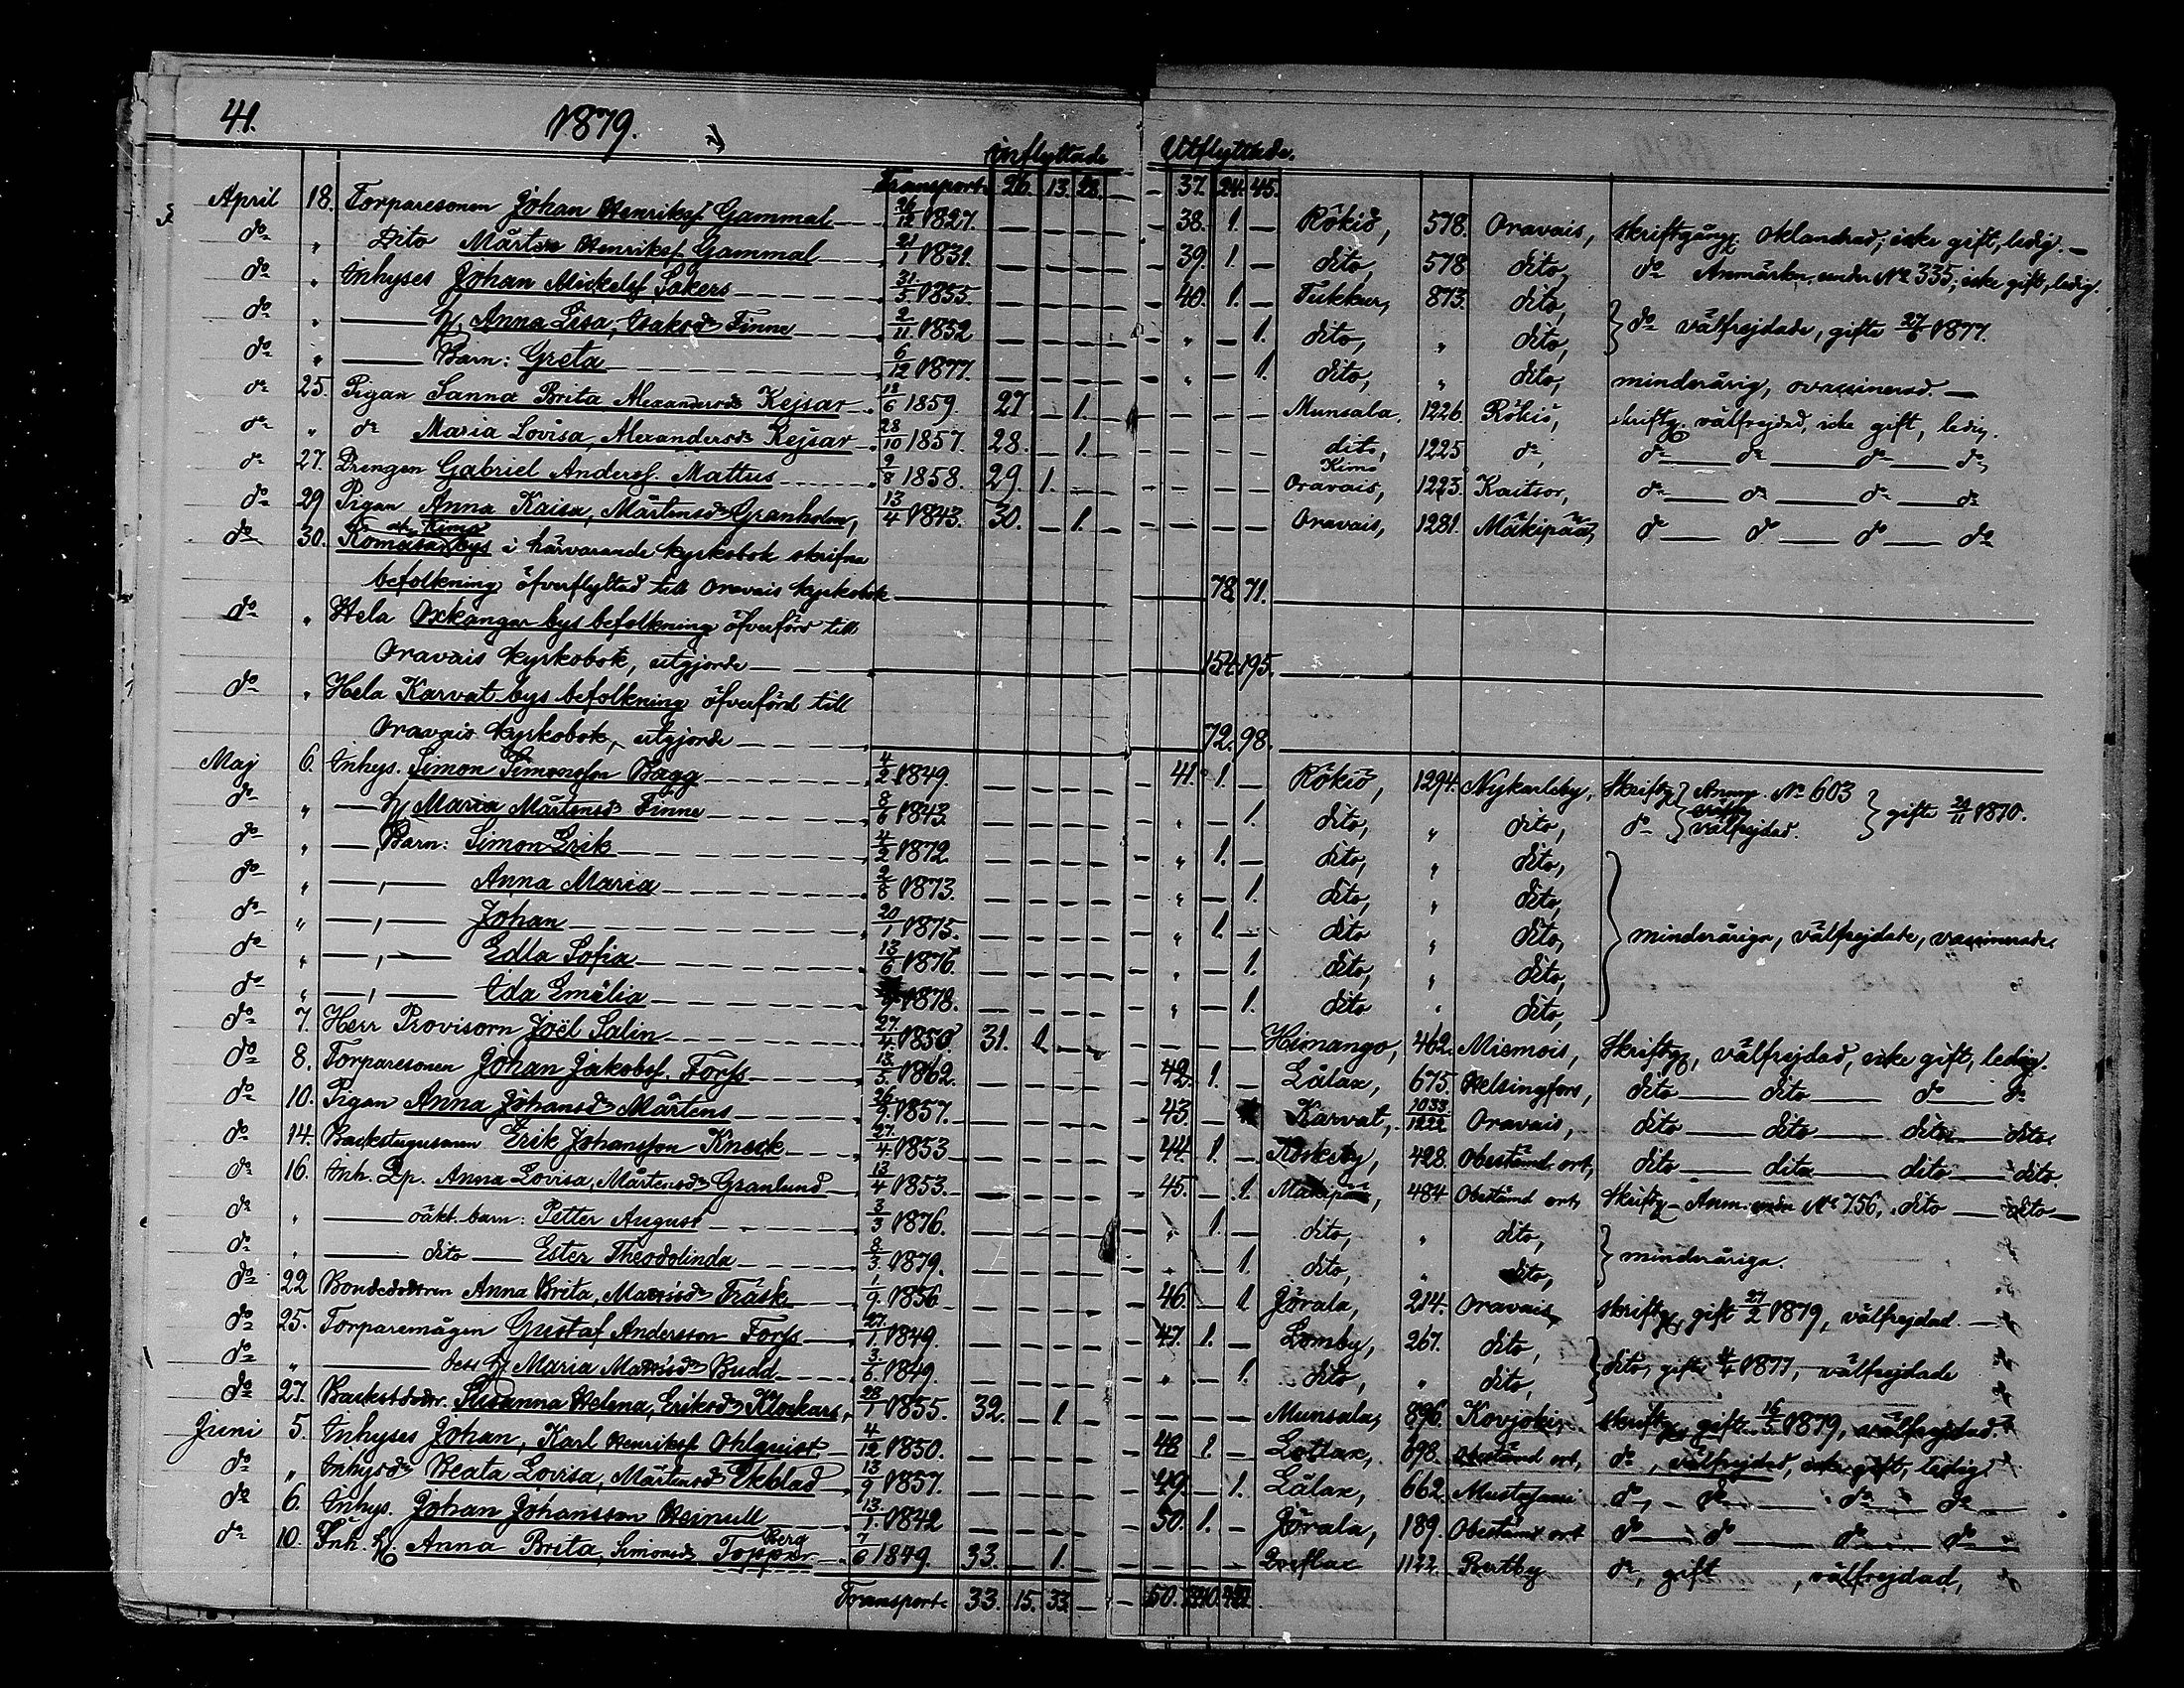 41. 1879.
inflyttade Utflyttade.
Transport. 26. 13. 28. — — 37. 24. 45.
April 18. Torparesonen Johan Henriksf. Gammal 26/12 1827. — — — — 38. 1. — Rökiö, 578. Oravais, skriftgång. oklandrad; icke gift, ledig.
do " Dito Mårten Henriksf. Gammal 21/1 1831. — — — — 39. 1. — dito, 578 dito, do Anmärkn. under No 335; icke gift, ledig.
do " Inhyses Johan Mickelsf. Sakers 31/5 1855. — — — — 40. 1. — Tukkur, 873. dito, } do välfrejdade, gifte 27/6 1877.
do " — h. Anna Lisa, Isaksdr Finne 2/11 1852 — — — — " — 1. dito, " dito,
do " — Barn: Greta 6/12 1877. — — — — " — 1. dito, " dito, minderårig, ovaccinerad. —
do 25. Pigan Sanna Brita Alexandersdr Kejsar 18/6 1859. 27 — 1. — — — — Munsala, 1226 Rökiö, skriftg. välfrejdad, icke gift, ledig.
do " do Maria Lovisa, Alexandersdr Kejsar 28/10 1857. 28. — 1. — — — — dito, 1225 do, do — do — do — do
do 27. Drengen Gabriel Andersf. Mattus 9/8 1858. 29. 1. — — — — — Kimo Oravais, 1223. Kaitsor, do — do — do — do
do 29 Pigan Anna Kaisa, Mårtensdr Granholm, 13/4 1843. 30. — 1. — — — — Oravais, 1281. Mäkipää, do — do — do — do
do 30. Komossa och Kimo bys i härvarande kyrkobok skrifna
befolkning öfverflyttad till Oravais kyrkobok 78. 71.
do " Hela Oxkangar bys befolkning öfverförd till
Oravais kyrkobok, utgjorde 154. 195.
do " Hela Karvat bys befolkning öfverförd till
Oravais kyrkobok, utgjorde 72. 98.
Maj 6. Inhys. Simon Simonsson Bagg 4/2 1849. — — — — 41. 1. — Rökiö, 1294. Nykarleby, Skriftg. } Anm. No 603 } gifte 20/11 1870.
do " — h. Maria Mårtensdr Finne 8/6 1843 — — — — " — 1. dito, " dito, do } välfrejdad.
do " — Barn: Simon Erik 4/2 1872. — — — — " 1. — dito, " dito,
do " — " — Anna Maria 2/8 1873. — — — — " — 1. dito, " dito,
do " — " — Johan 20/1 1875. — — — — " 1. — dito " dito, } minderåriga, välfrejdade, vaccinerade.
do " — " — Edla Sofia 13/6 1876. — — — — " — 1. dito, " dito,
do " — " — Ida Emilia 1878. — — — — " — 1. dito " dito,
do 7. Herr Provisorn Joël Salin 27/4 1850 31. 1. — — — — — Himango, 462. Miemois, Skriftg., välfrejdad, icke gift, ledig.
do 8. Torparesonen Johan Jakobsf. Forss 13/5 1862. — — — — 42. 1. — Lålax, 675. Helsingfors, dito — dito — do — do
do 10. Pigan Anna Johansdr Mårtens 26/9 1857. — — — — 43. — Karvat, 1033/1222 Oravais, dito — dito — dito — dito.
do 14. Backstugusonen Erik Johansson Kneck 27/4 1853 — — — — 44. 1. — Röskeby, 428. Obestämd ort, dito — dito — dito — dito.
do 16. Inh. Lp. Anna Lovisa, Mårtensdr Granlund 13/4 1853. — — — — 45. — 1. Mäkipää, 484 Obestämd ort, Skriftg. — Anm. under No 756, dito — dito —
do " — oäkt. barn: Petter August 3/3 1876. — — — — " 1. — dito, " dito, } minderåriga.
do " — dito — Ester Theodolinda 8/3 1879. — — — — " — 1. dito, " dito,
do 22 Bondedottren Anna Brita, Matsdr Träsk 1/9 1856 — — — — 46. — 1 Jörala, 214. Oravais, skriftg., gift 27/2 1879, välfrejdad. —
do 25. Torparemågen Gustaf Andersson Forss 27/1 1849. — — — — 47. 1. — Lomby, 267. dito, } dito, gifte 1877, välfrejdade
do " — dess h. Maria Matsdr Budd 3/6 1849. — — — — " — 1. dito, " dito,
do 27. Backstudotr. Susanna Helena, Eriksdr Klockars, 28/1 1855. 32. — 1 — — — — Munsala, 896. Kovjoki, skriftg., gift 16/5 1879, välfrejdad.
Juni 5. Inhyses Johan, Karl Henriksf. Ohlquist 4/12 1850. — — — — 48 1. — Lottax, 698. Obestämd ort, do, välfrejdad, icke gift, ledig.
do " Inhysdr Beata Lovisa, Mårtensdr Ekblad 13/9 1857. — — — — 49. — 1. Lålax, 662. Mustasaari do — do — do — do —
do 6. Inhys. Johan Johansson Heinull 13/1 1842 — — — — 50. 1. — Jörala, 189. Obestämd ort do — do — do — do —
do 10. Inh. h. Anna Brita, Simonsdr Toppar Berg 7/6 1849. 33. — 1. — — — — Oxflax 1122. Bertby do, gift , välfrejdad,
Transport. 33. 15. 33. — — 50.